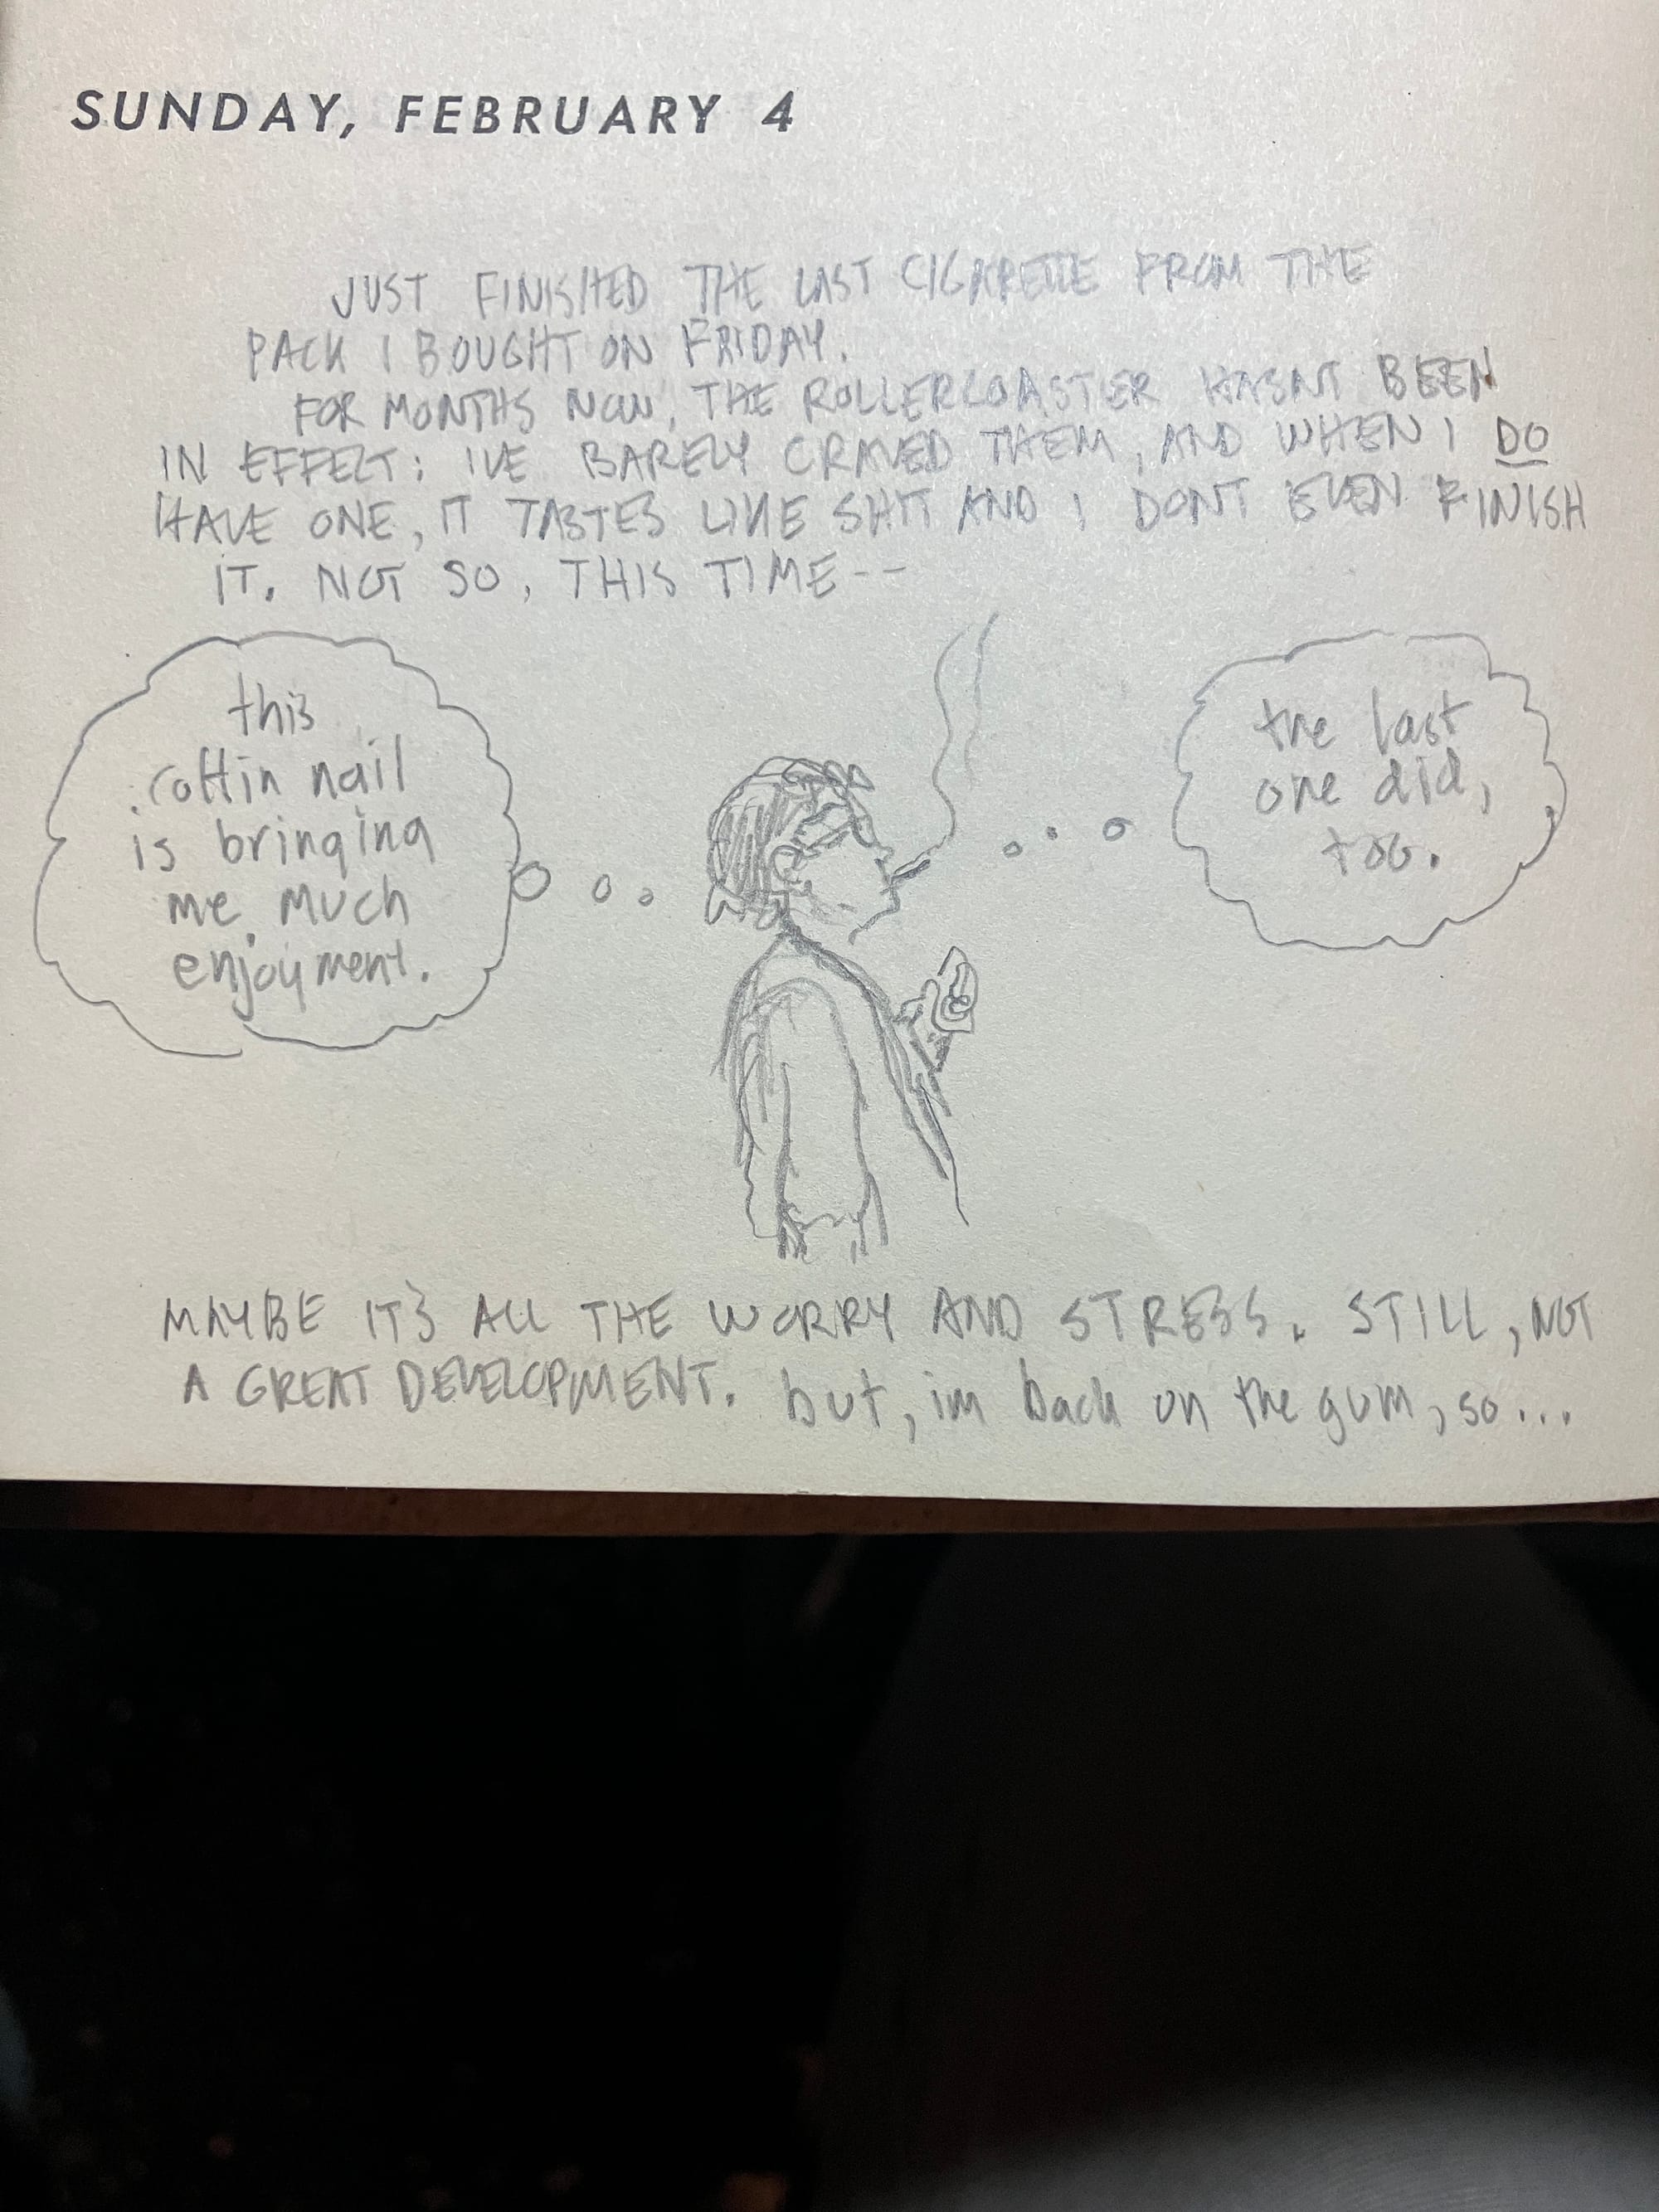 SUNDAY, FEBRUARY 4
JUST FINISHED THE LAST CIGARETTE FROM THE
PACK I BOUGHT ON FRIDAY.
FOR MONTHS NOW, THE ROLLERCOASTER HASNT BEEN
IN EFFECT: IVE BARELY CRAVED THEM, AND WHEN I DO
HAVE ONE, IT TASTES LIKE SHIT AND I DONT EVEN FINISH
IT. NOT SO, THIS TIME--
this
coffin nail
is bringing
me much
enjoyment.
the last
one did,
too.
MAYBE IT'S ALL THE WORRY AND STRESS. STILL, NOT
A GREAT DEVELOPMENT. but, im back on the gum, so...